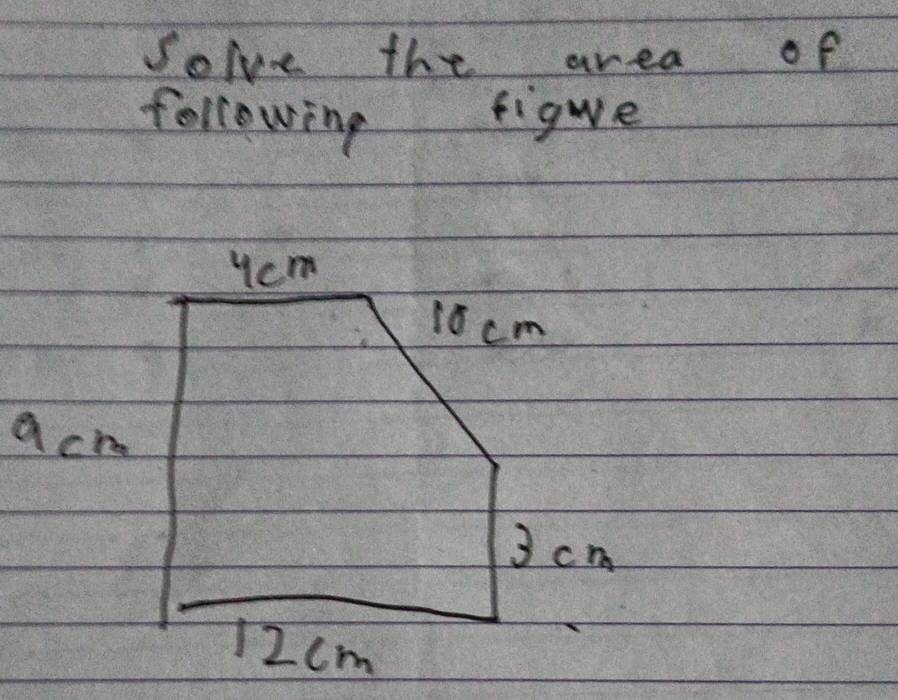 Solve the area of
following figure
4cm
10 cm
9cm
3 cm
12cm